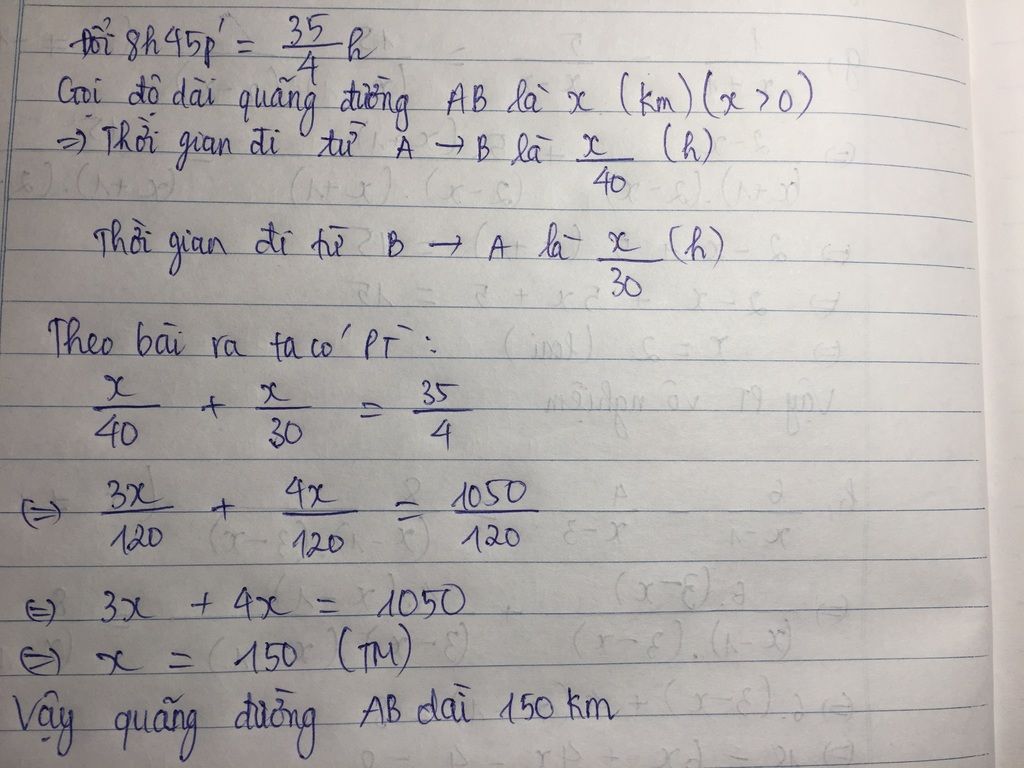 Đổi 8h45p' = 35/4 h
Gọi độ dài quãng đường AB là x (km) (x > 0)
=> Thời gian đi từ A → B là x/40 (h)
Thời gian đi từ B → A là x/30 (h)
Theo bài ra ta có PT:
x/40 + x/30 = 35/4
<=> 3x/120 + 4x/120 = 1050/120
<=> 3x + 4x = 1050
<=> x = 150 (TM)
Vậy quãng đường AB dài 150 km